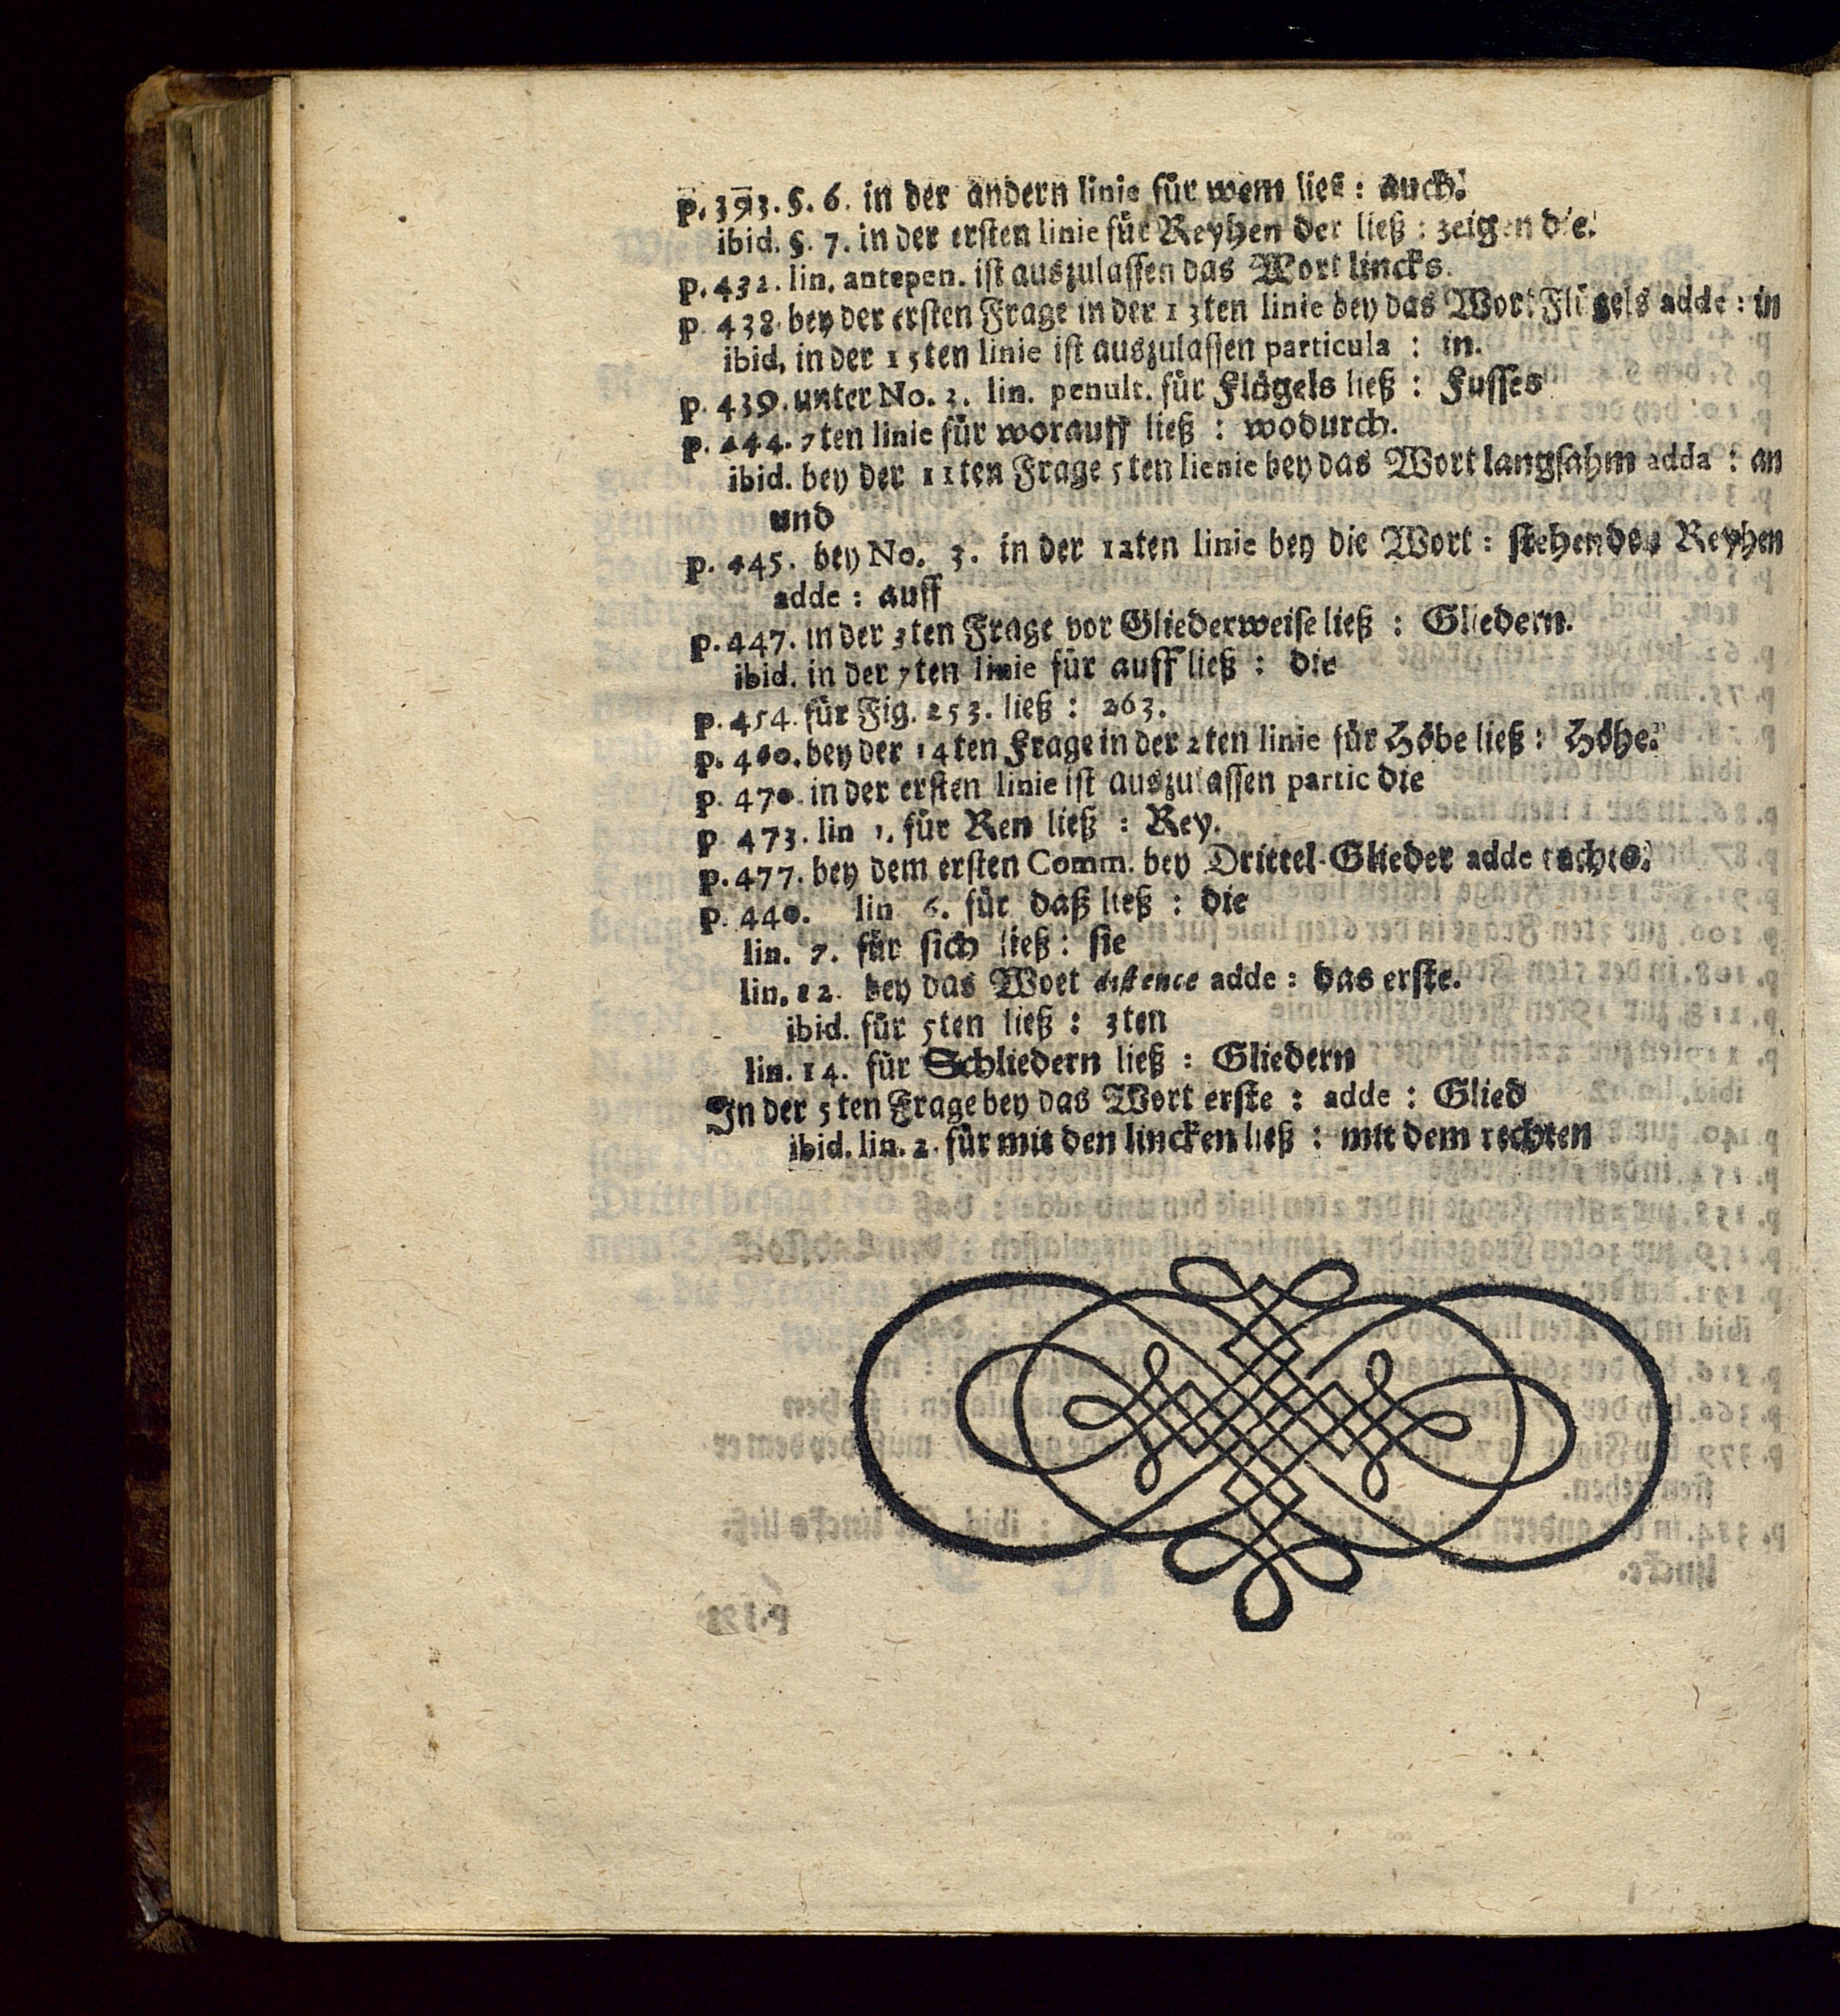 p. 393. §. 6. in der andern linie für wem ließ: auch.
ibid. §. 7. in der ersten linie für Reyhen der ließ: zeigen die.
p. 432. lin. antepen. ist auszulassen das Wort lincks.
p 438. bey der ersten Frage in der 13ten linie bey das Wort Flügels adde: in
ibid, in der 15ten linie ist auszulassen particula: in.
p. 439. unter No. 2. lin. penult. für Flügels ließ: Fusses
p. 444. 7ten linie für worauff ließ: wodurch.
ibid. bey der 11ten Frage 5ten lienie bey das Wort langsahm adda: an
und
p. 445. bey No. 3. in der 12ten linie bey die Wort: stehenden Reyhen
adde: auff
p. 447. in der 3ten Frage vor Gliederweise ließ: Gliedern.
ibid. in der 7ten linie für auff ließ: die
p. 454. für Fig. 253. ließ: 263.
p. 460. bey der 14ten Frage in der 2ten linie für Höbe ließ: Höhe.
p. 470. in der ersten linie ist auszulassen partic die
p 473. lin 1. für Ren ließ: Rey.
p. 477. bey dem ersten Comm. bey Drittel-Glieder adde rechts.
p. 440. lin 6. für daß ließ: die
lin. 7. für sich ließ: sie
lin. 12. bey das Woet distence adde: das erste.
ibid. für 5ten ließ: 3ten
lin. 14. für Schliedern ließ: Gliedern
In der 5ten Frage bey das Wort erste: adde: Glied
ibid. lin. 2. für mit den lincken ließ: mit dem rechten